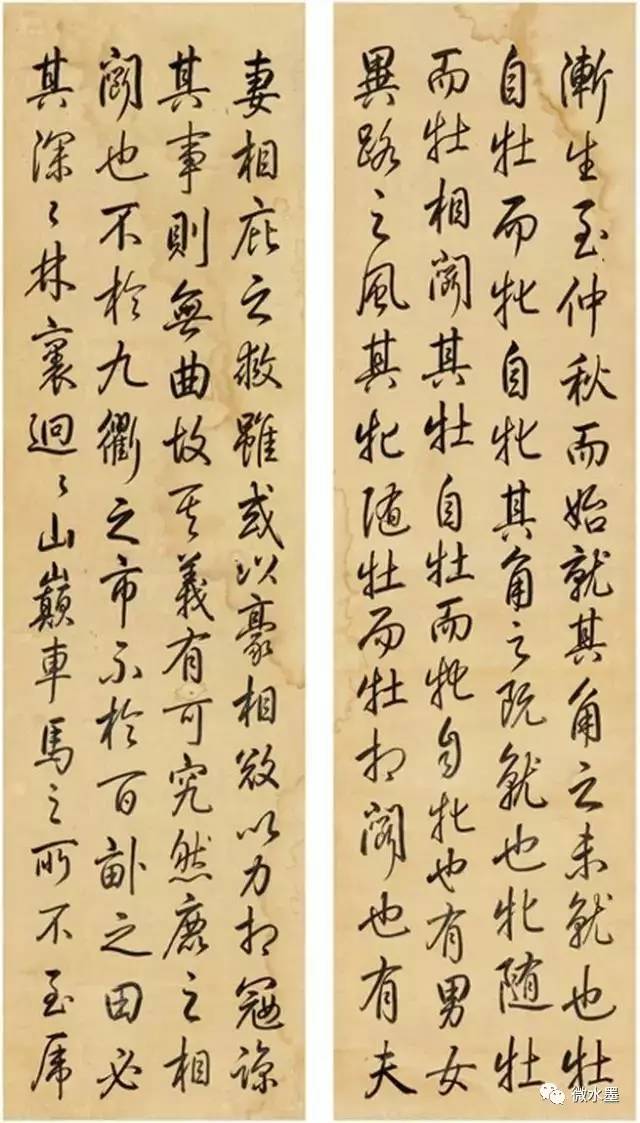 漸生至仲秋而始就其角之未就也牡
自牡而牝自牝其角之既就也牝随牡
而牡相鬬其牡自牡而牝自牝也有男女
異路之風其牝随牡而牡相鬬也有夫
妻相庇之救雖或以豪相欺以力相寇諒
其事則無曲故其義有可究然鹿之相
鬬也不於九衢之市不於百畝之田必
其深々林裏迴々山巔車馬之所不至
微水墨